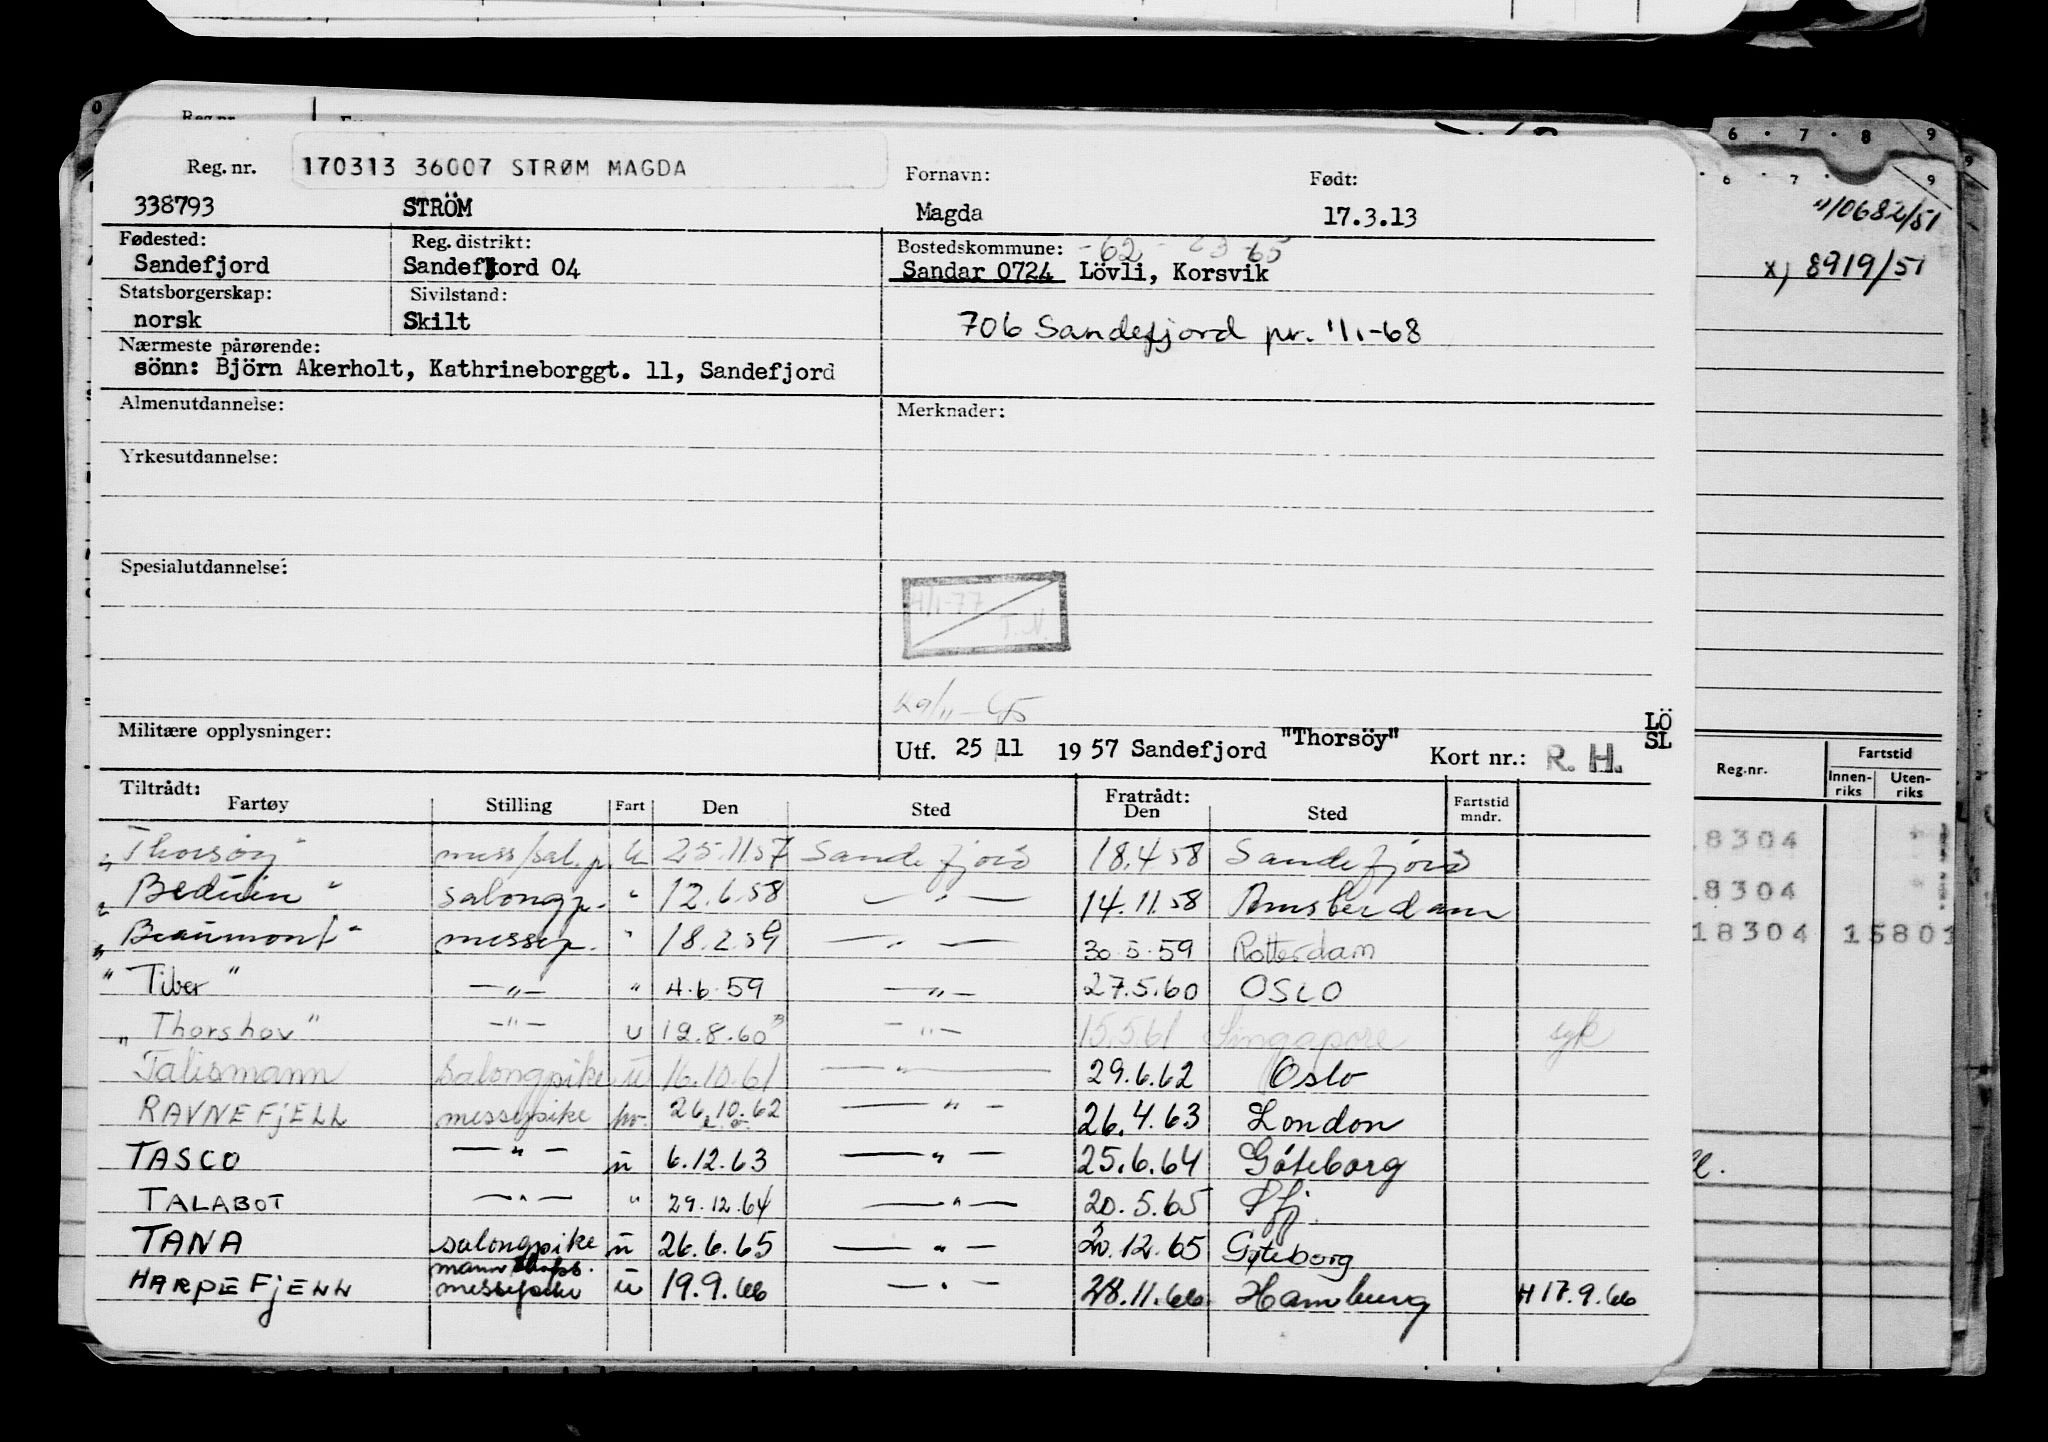 6 · 7 · 8 9
6 · 7 · 9
"/10682/51
x, 8919/51
Reg. nr. 170313 36007 STRØM MAGDA Fornavn: Født:
338793 STRÖM Magda 17.3.13
Fødested: Reg. distrikt: Bostedskommune: -62 - 65
Sandefjord Sandefjord 04 Sandar 0724 Lövli, Korsvik
Statsborgerskap: Sivilstand:
norsk Skilt 706 Sandefjord pr. 1/1-68
Nærmeste pårørende:
sönn: Björn Akerholt, Kathrineborggt. 11, Sandefjord
Almenutdannelse: Merknader:
Yrkesutdannelse:
Spesialutdannelse:
4/1-77
T.N.
Militære opplysninger: Utf. 25/11 1957 Sandefjord "Thorsöy" Kort nr.: R. H. LÖ SL
Tiltrådt: Fratrådt:
Fartøy Stilling Fart Den Sted Den Sted Fartstid mndr.
Reg.nr. Fartstid
Innen-riks Uten-riks
"Thorsöy" mess/sal.p. u 25.11.57 Sandefjord 18.4.58 Sandefjord
"Beduin" salongp. " 12.6.58 — " — 14.11.58 Amsterdam
"Beaumont" messep. " 18.2.59 — " — 30.5.59 Rotterdam
"Tiber" — " — " 4.6.59 — " — 27.5.60 OSLO
"Thorshov" — " — u 12.8.60 — " — 15.5.61 Singapore syk
Talismann salongpike u 16.10.61 — " — 29.6.62 Oslo
RAVNEFJELL messepike 26.10.62 — " — 26.4.63 London
TASCO — " — u 6.12.63 — " — 25.6.64 Göteborg
TALABOT — " — " 29.12.64 — " — 20.5.65 Sfj.
TANA salongpike u 26.6.65 — " — 20.12.65 Gøteborg
HARPEFJELL messepike u 19.9.66 — " — 28.11.66 Hamburg H 17.9.66
18304
18304
18304 15801